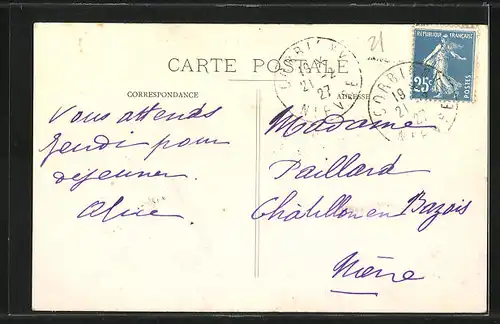 21
RÉPUBLIQUE FRANÇAISE
25c
POSTES
CARTE POSTALE
CORRESPONDANCE
ADRESSE
CORBIGNY
19
21
27
NIEVRE
CORBIGNY
19
21
27
NIEVRE
Vous attends
Jeudi pour
déjeuner
Alice
Madame
Paillard
Châtillon en Bazois
Nièvre